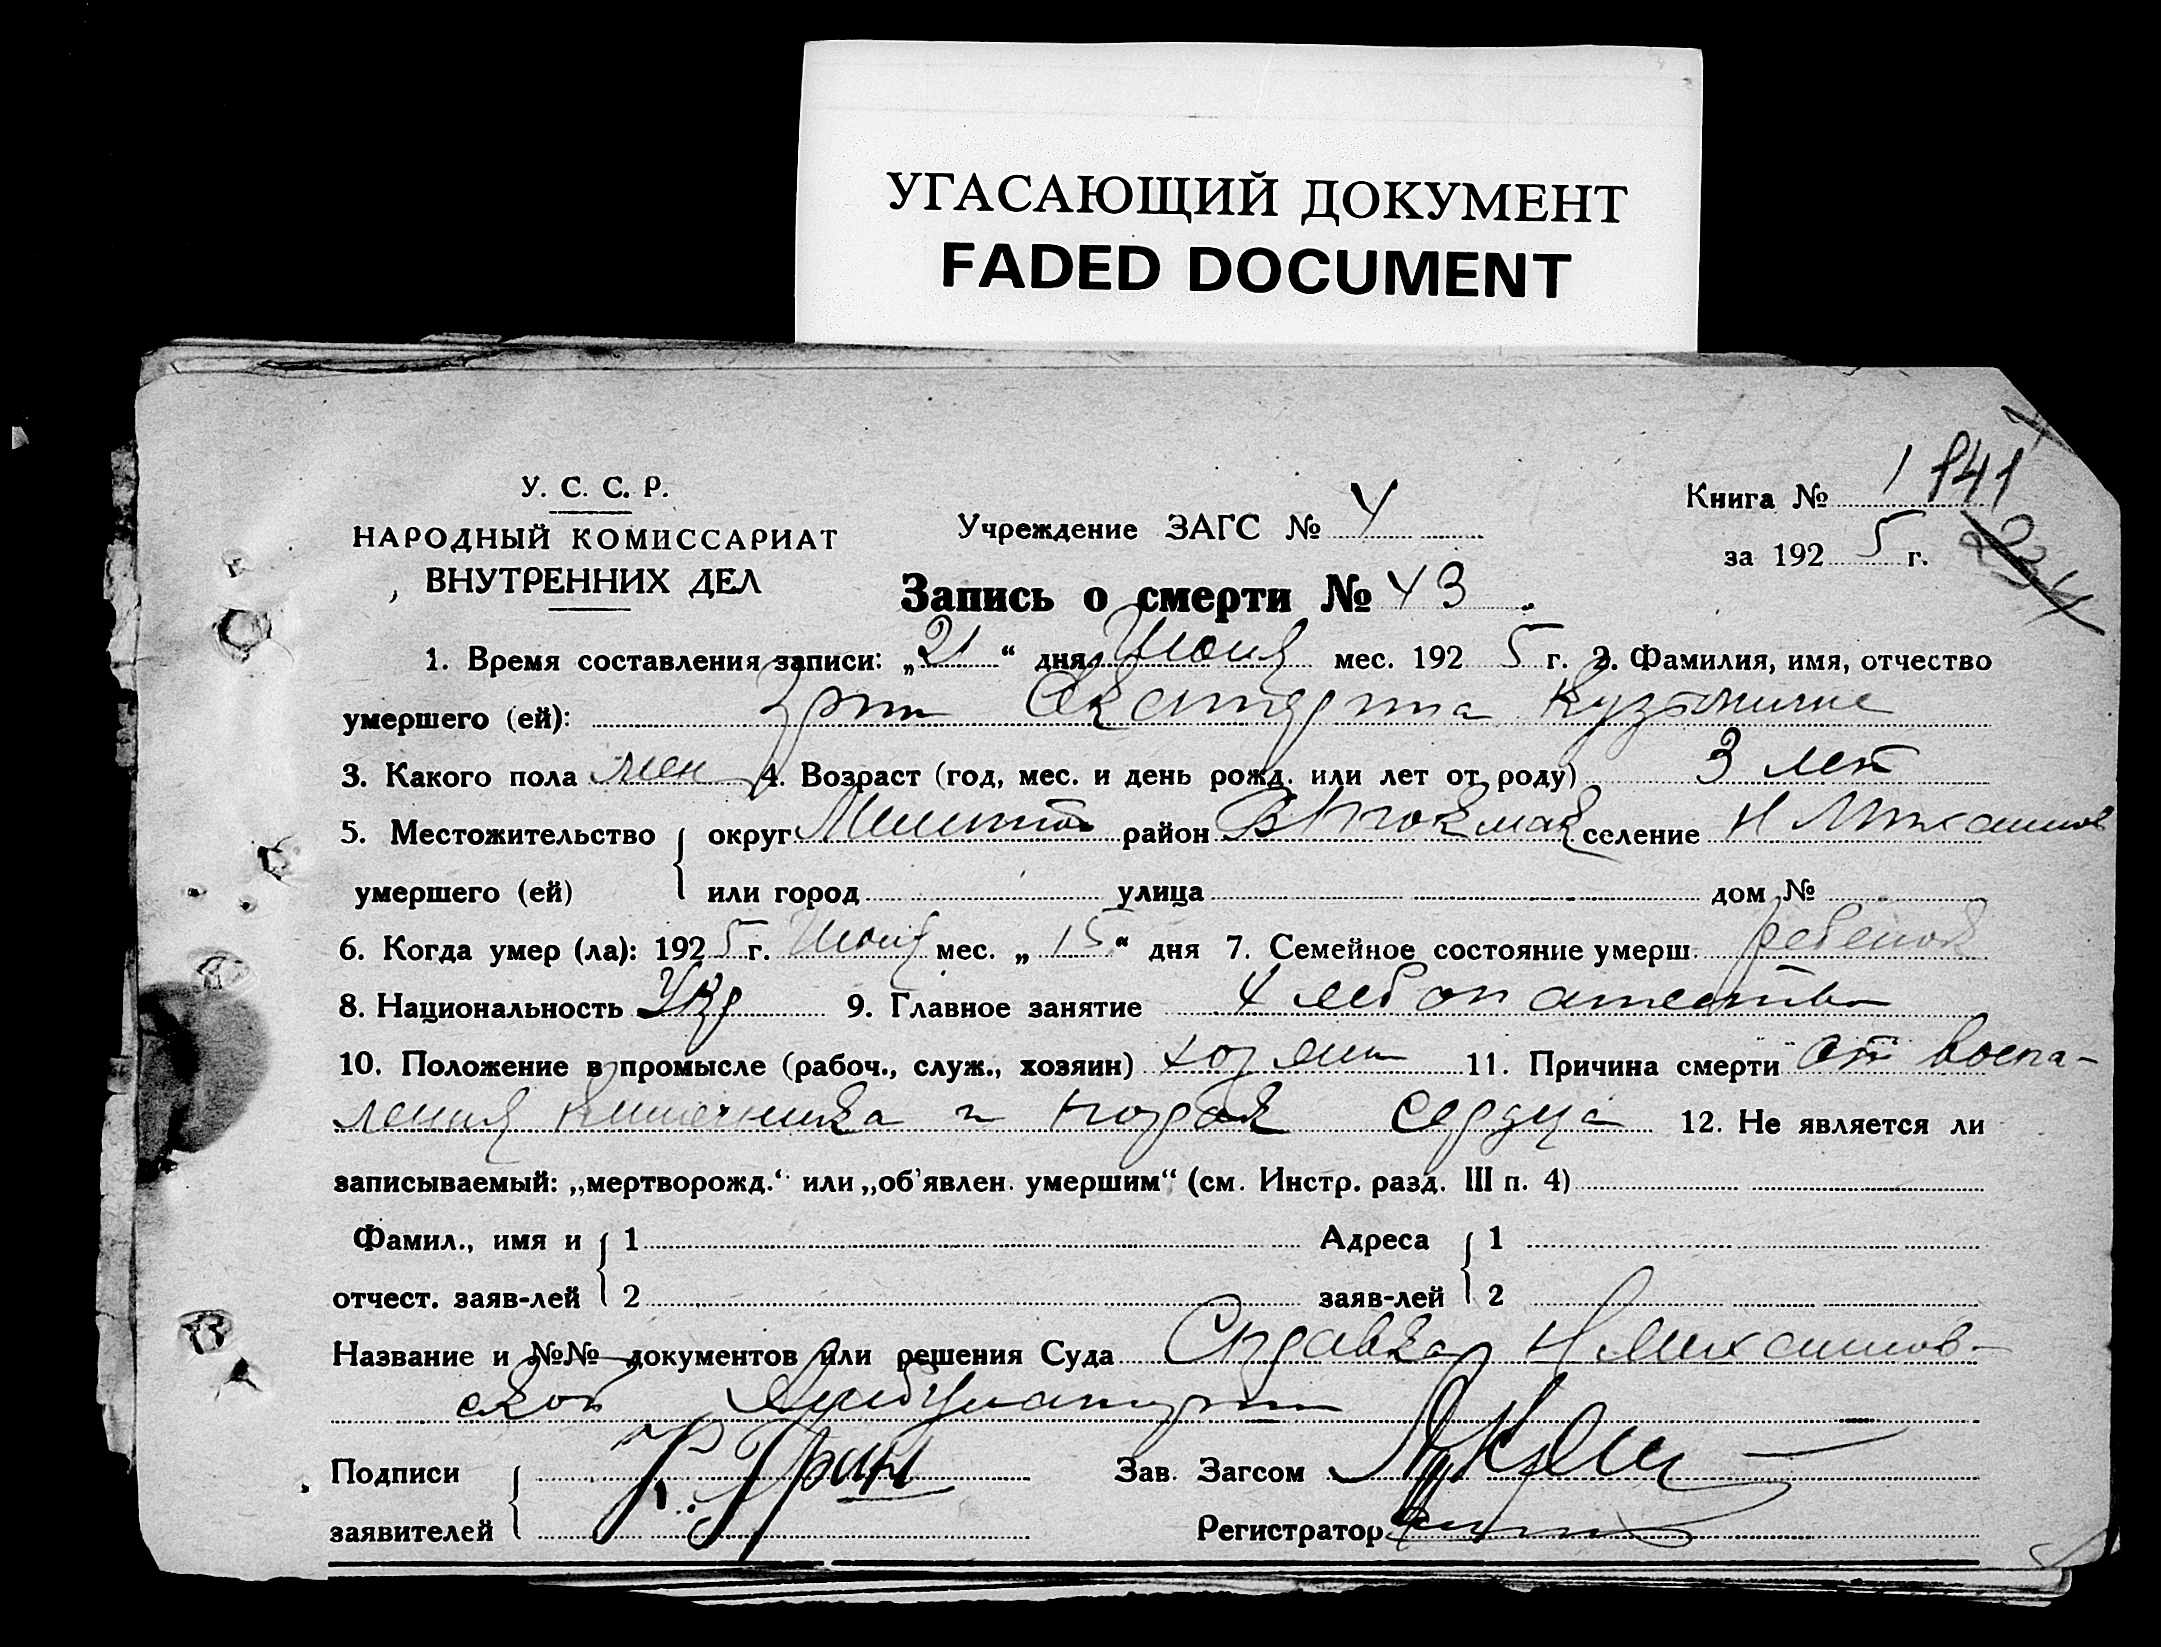 УГАСАЮЩИЙ ДОКУМЕНТ
FADED DOCUMENT
У. С. С. Р.
НАРОДНЫЙ КОМИССАРИАТ
ВНУТРЕННИХ ДЕЛ
Учреждение ЗАГС № 4
Книга № 1
за 1925 г.
Запись о смерти № 43
1. Время составления записи: „21“ дня Июня мес. 1925 г. 2. Фамилия, имя, отчество
умершего (ей): Екатерина
3. Какого пола жен 4. Возраст (год, мес. и день рожд. или лет от роду) 3 лет
5. Местожительство округ Мелитоп район В Токмак селение Н Михайлов
умершего (ей) или город улица дом №
6. Когда умер (ла): 1925 г. Июня мес. „15“ дня 7. Семейное состояние умерш. ребенок
8. Национальность Укр 9. Главное занятие
10. Положение в промысле (рабоч., служ., хозяин) хозяин 11. Причина смерти от воспа-
ления кишечника и порок сердца 12. Не является ли
записываемый: „мертворожд.“ или „об'явлен. умершим“ (см. Инстр. разд. III п. 4)
Фамил., имя и 1 Адреса 1
отчест. заяв-лей 2 заяв-лей 2
Название и №№ документов или решения Суда Справка Н Михайлов-
ской Амбулатории
Подписи Зав. Загсом
заявителей Регистратор